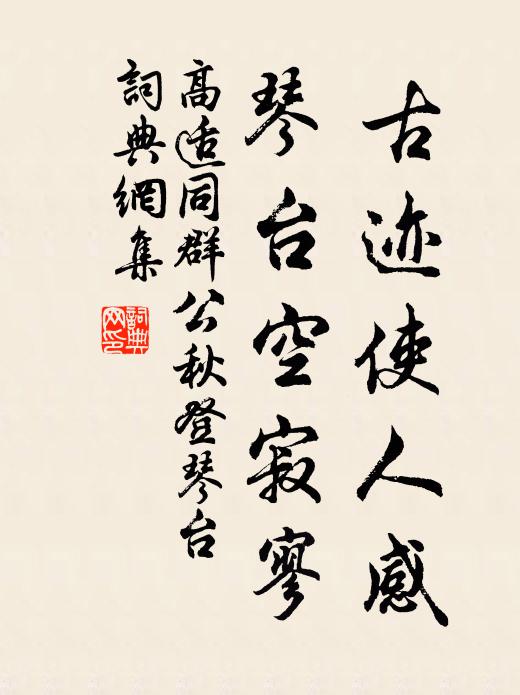 古迹使人感
琴台空寂寥
高适同群公秋登琴台
詞典網集
詞典网印